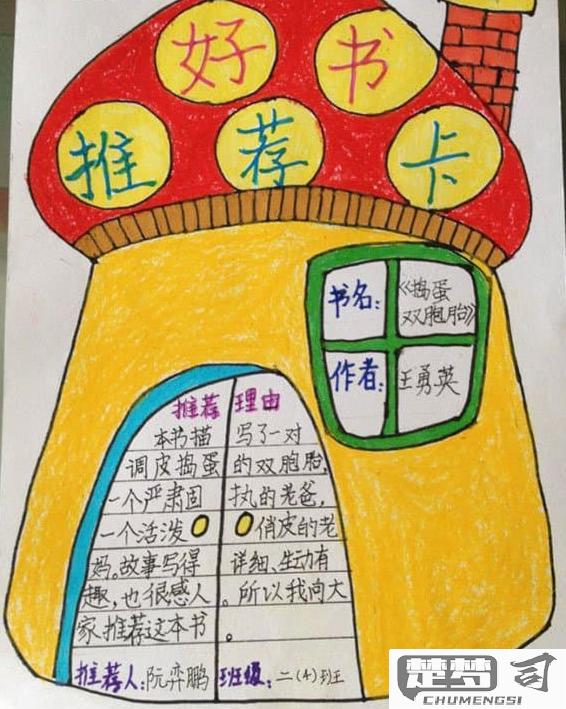 好书
推荐卡
书名：《捣蛋
双胞胎》
作者：王勇英
推荐理由
本书描写了一对
调皮捣蛋的双胞胎，
一个严肃固执的老爸，
一个活泼俏皮的老
妈。故事写得详细、生动有
趣，也很感人。所以我向大
家推荐这本书。
推荐人：阮弈鹏 班级：二（4）班
楚梦司
CHUMENGSI